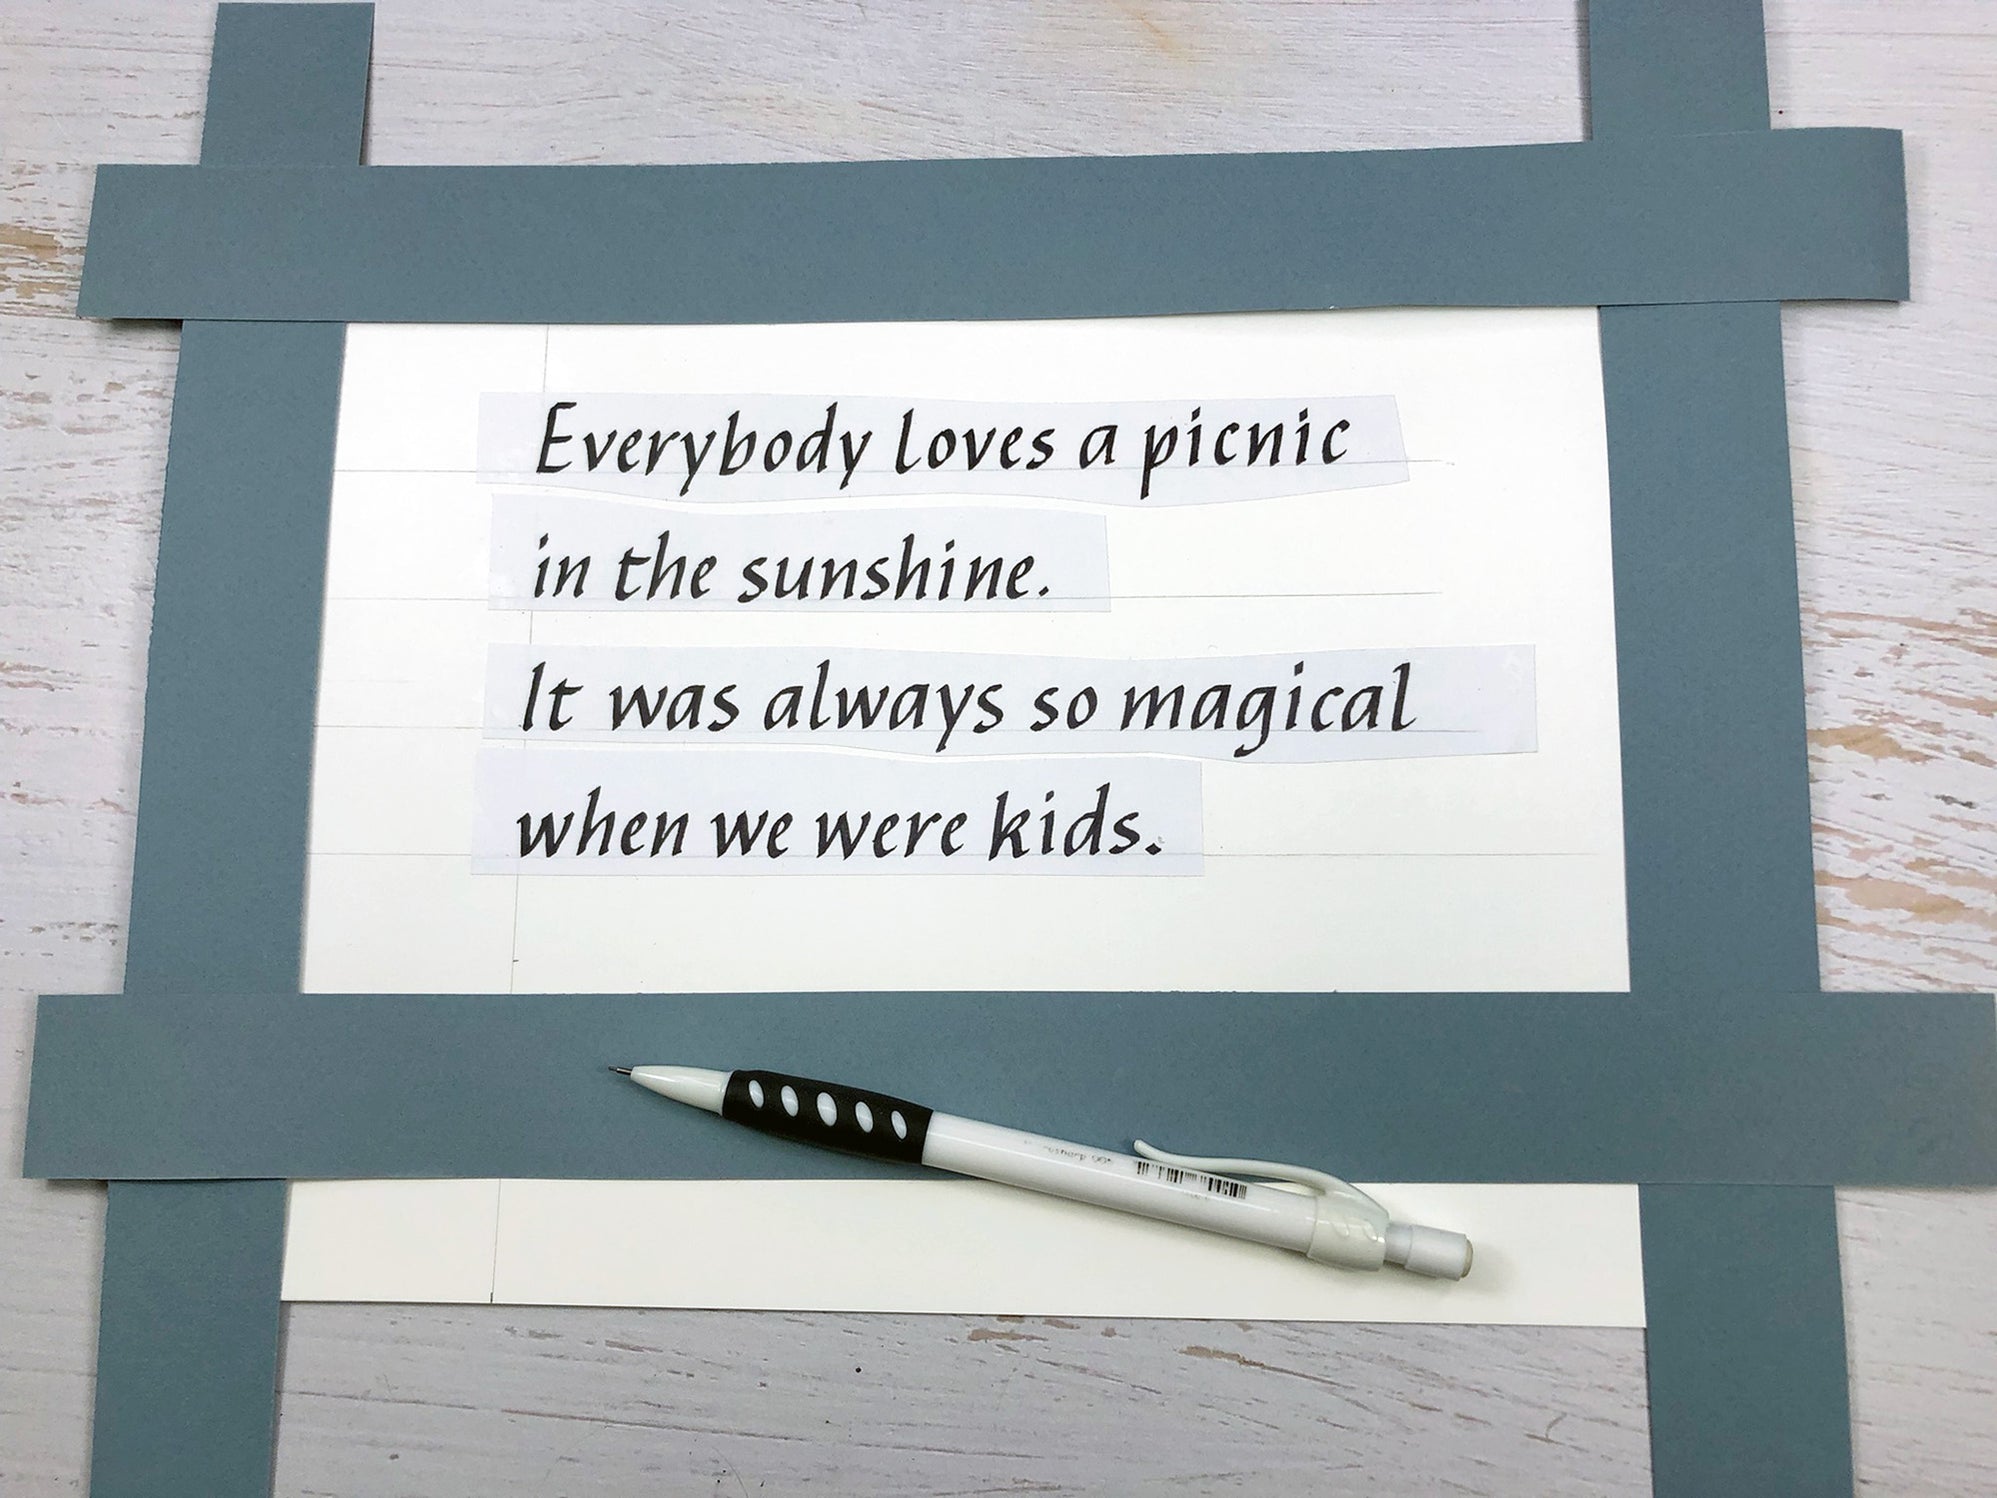 Everybody loves a picnic
in the sunshine.
It was always so magical
when we were kids.